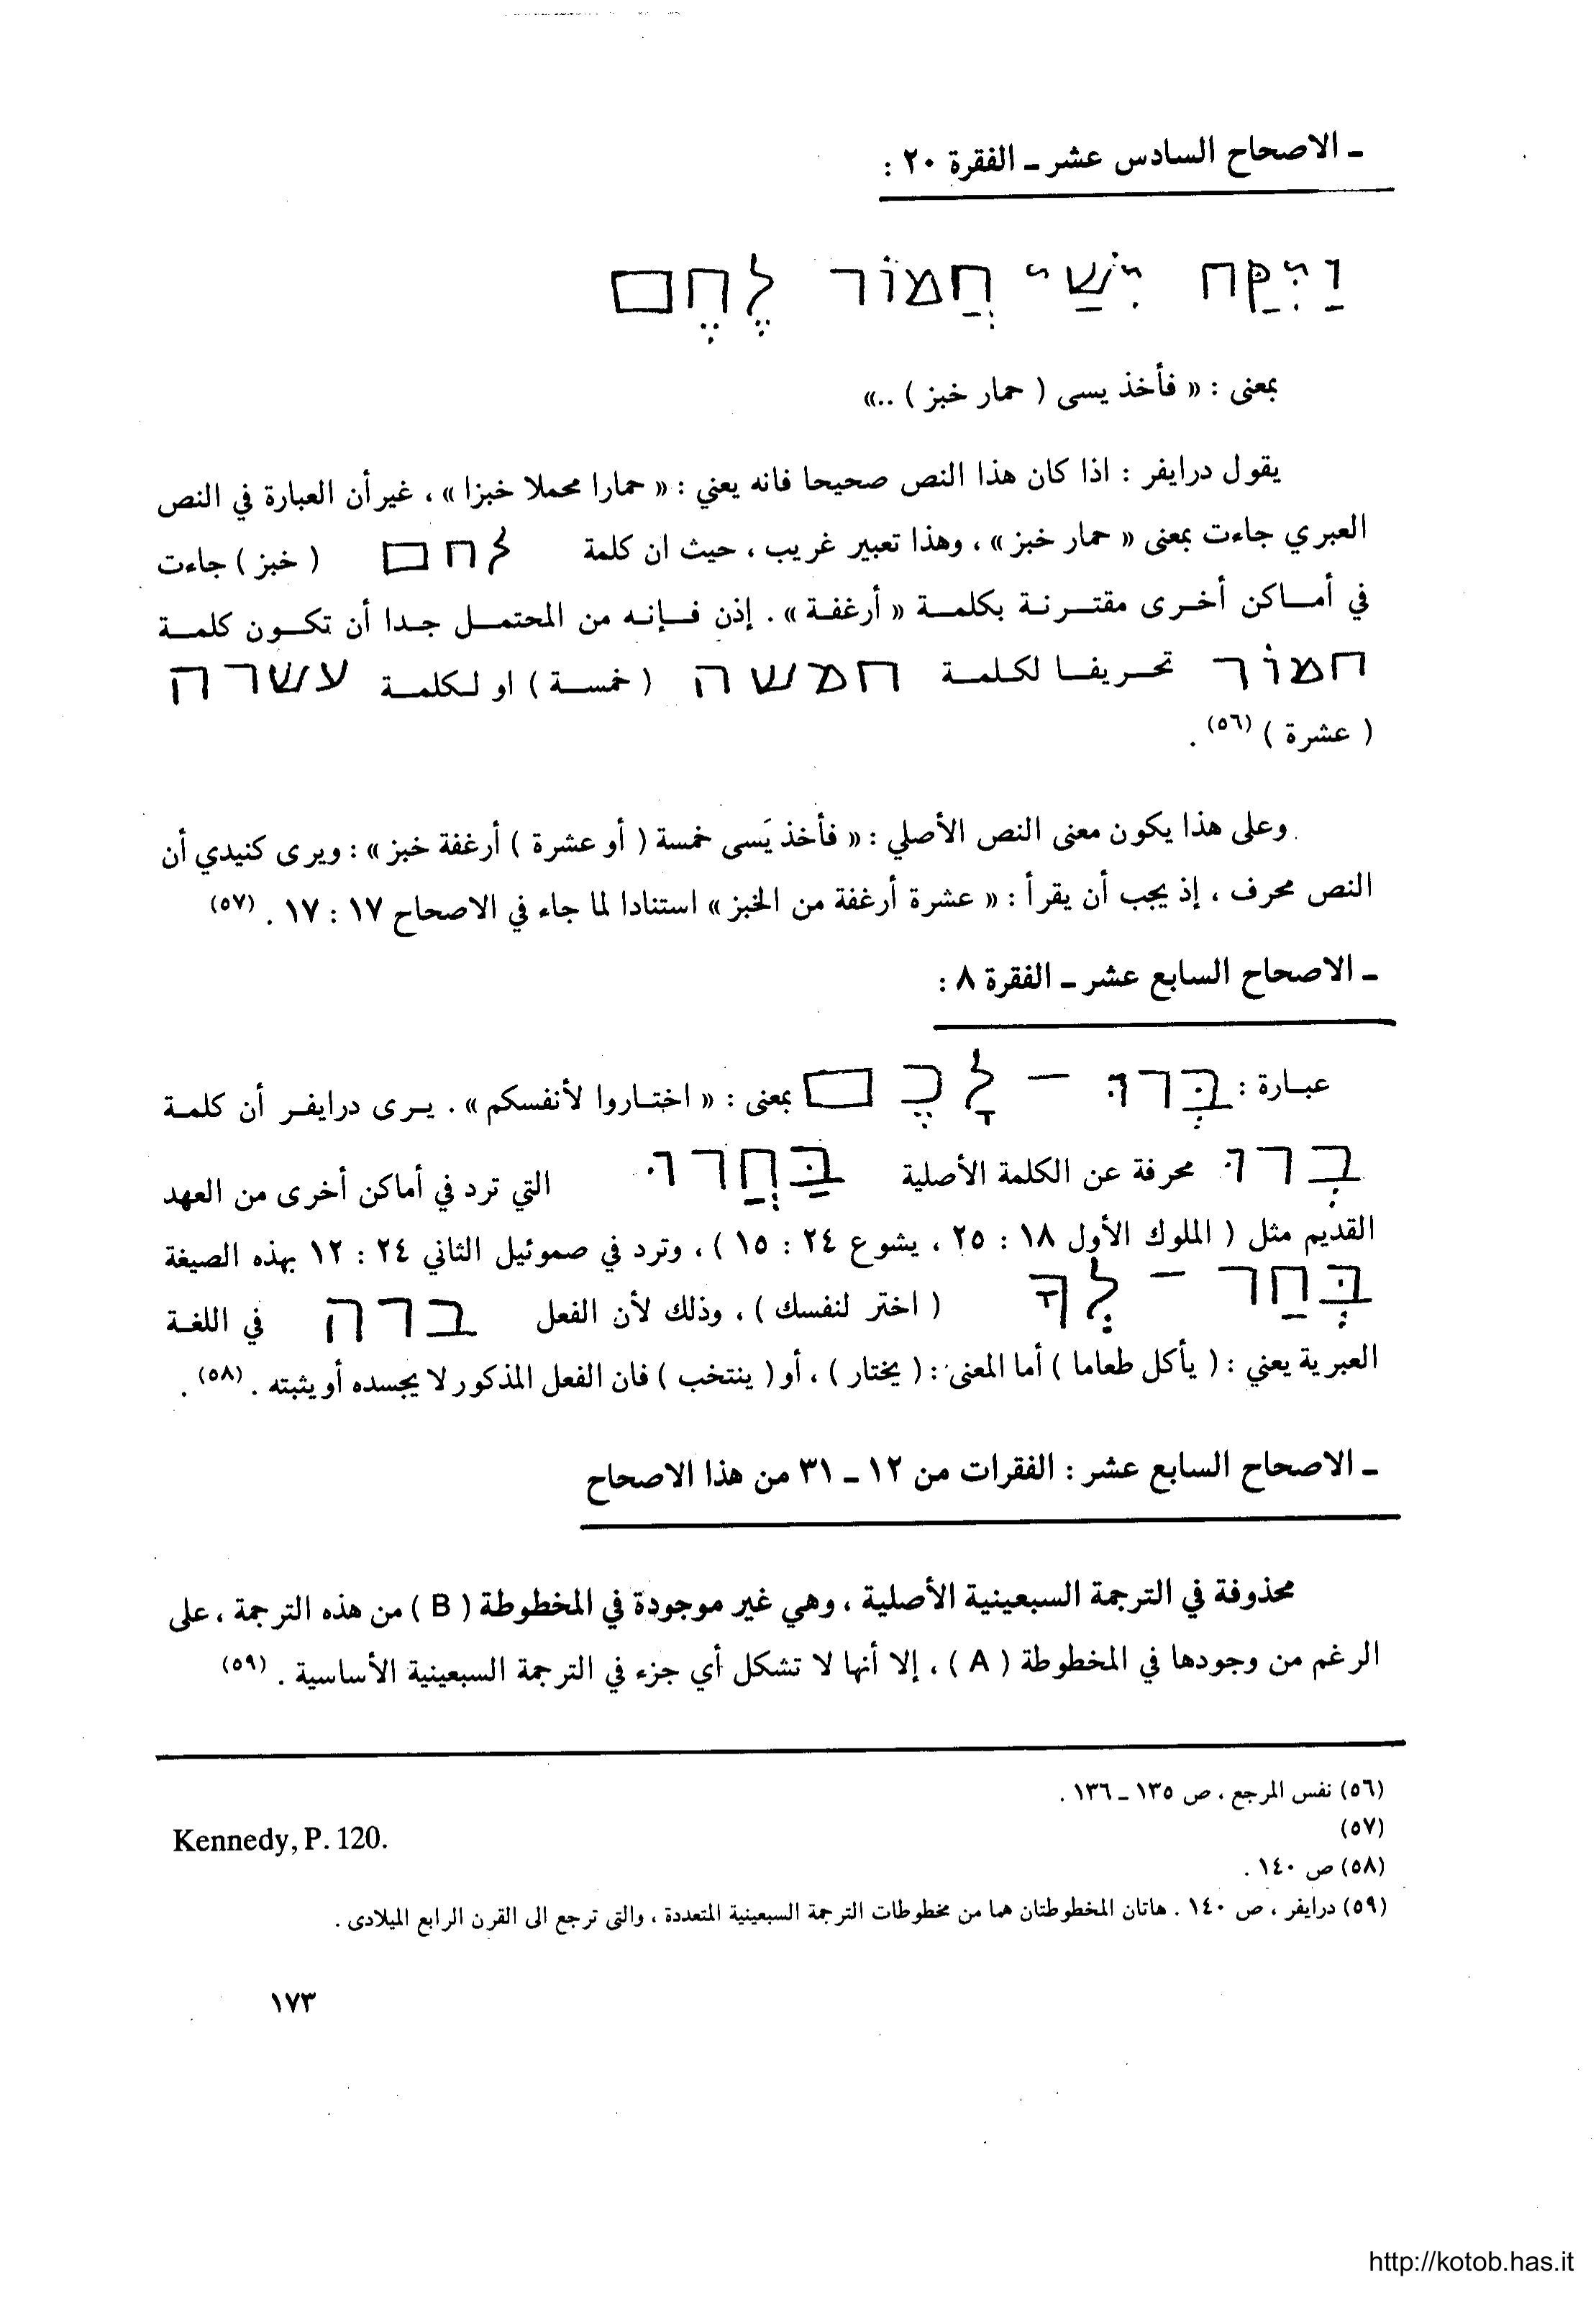 ـ الاصحاح السادس عشر ـ الفقرة ٢٠ :
וַיִּקַּח יִשַׁי חֲמוֹר לֶחֶם
بمعنى : « فأخذ يسى ( حمار خبز ) ..»
يقول درايفر : اذا كان هذا النص صحيحا فانه يعني : « حمارا محملا خبزا » ، غير أن العبارة في النص
العبري جاءت بمعنى « حمار خبز » ، وهذا تعبير غريب ، حيث ان كلمة לחם ( خبز ) جاءت
في أماكن أخرى مقترنة بكلمة « أرغفة » . إذن فإنه من المحتمل جدا أن تكون كلمة
חמוֹר تحريفا لكلمة חמשה ( خمسة ) او لكلمة עשרה
( عشرة ) (٥٦) .
وعلى هذا يكون معنى النص الأصلي : « فأخذ يَسى خمسة ( أو عشرة ) أرغفة خبز » : ويرى كنيدي أن
النص محرف ، إذ يجب أن يقرأ : « عشرة أرغفة من الخبز » استنادا لما جاء في الاصحاح ١٧ : ١٧ . (٥٧)
ـ الاصحاح السابع عشر ـ الفقرة ٨ :
عبارة : בְּרוּ – לָכֶם بمعنى : « اختاروا لأنفسكم » . يرى درايفر أن كلمة
בְרוּ محرفة عن الكلمة الأصلية בַּחֲרוּ التي ترد في أماكن أخرى من العهد
القديم مثل ( الملوك الأول ١٨ : ٢٥ ، يشوع ٢٤ : ١٥ ) ، وترد في صموئيل الثاني ٢٤ : ١٢ بهذه الصيغة
בְּחַר – לְךָ ( اختر لنفسك ) ، وذلك لأن الفعل ברה في اللغة
العبرية يعني : ( يأكل طعاما ) أما المعنى : ( يختار ) ، أو ( ينتخب ) فان الفعل المذكور لا يجسده أو يثبته . (٥٨) .
ـ الاصحاح السابع عشر : الفقرات من ١٢ ـ ٣١ من هذا الاصحاح
محذوفة في الترجمة السبعينية الأصلية ، وهي غير موجودة في المخطوطة ( B ) من هذه الترجمة ، على
الرغم من وجودها في المخطوطة ( A ) ، إلا أنها لا تشكل أي جزء في الترجمة السبعينية الأساسية . (٥٩)
(٥٦) نفس المرجع ، ص ١٣٥ ـ ١٣٦ .
(٥٧) Kennedy, P. 120.
(٥٨) ص ١٤٠ .
(٥٩) درايفر ، ص ١٤٠ . هاتان المخطوطتان هما من مخطوطات الترجمة السبعينية المتعددة ، والتى ترجع الى القرن الرابع الميلادى .
١٧٣
http://kotob.has.it